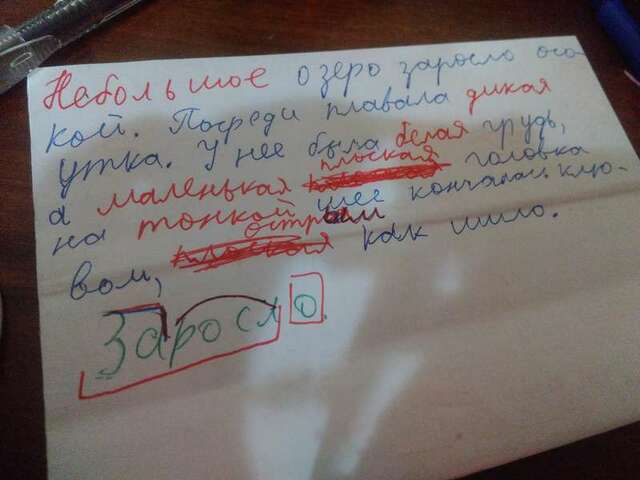 Небольшое озеро заросло осо
кой. Посреди плавала дикая
утка. У нее была белая грудь,
а маленькая плоская головка
на тонкой шее кончалась клю-
вом, острым как шило.
Заросло.